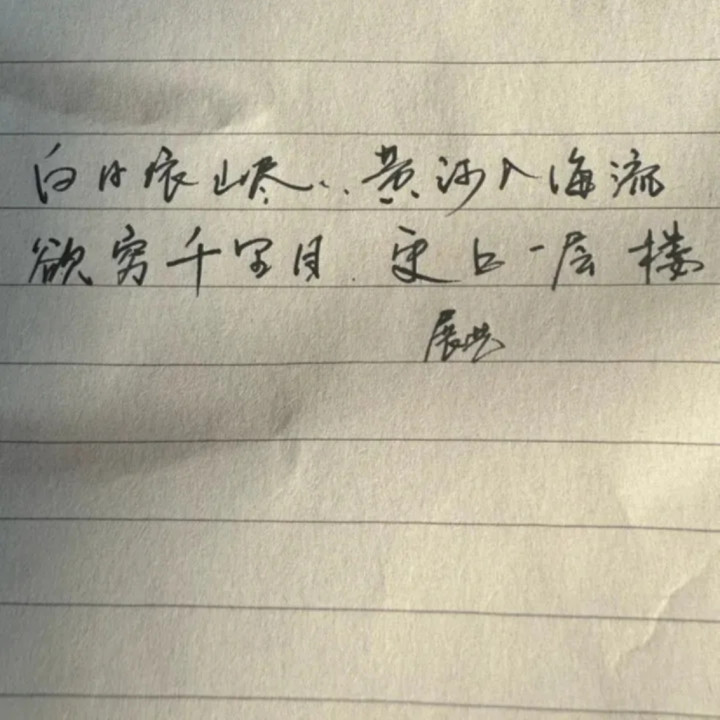 白日依山尽,黄河入海流
欲穷千里目.更上一层楼